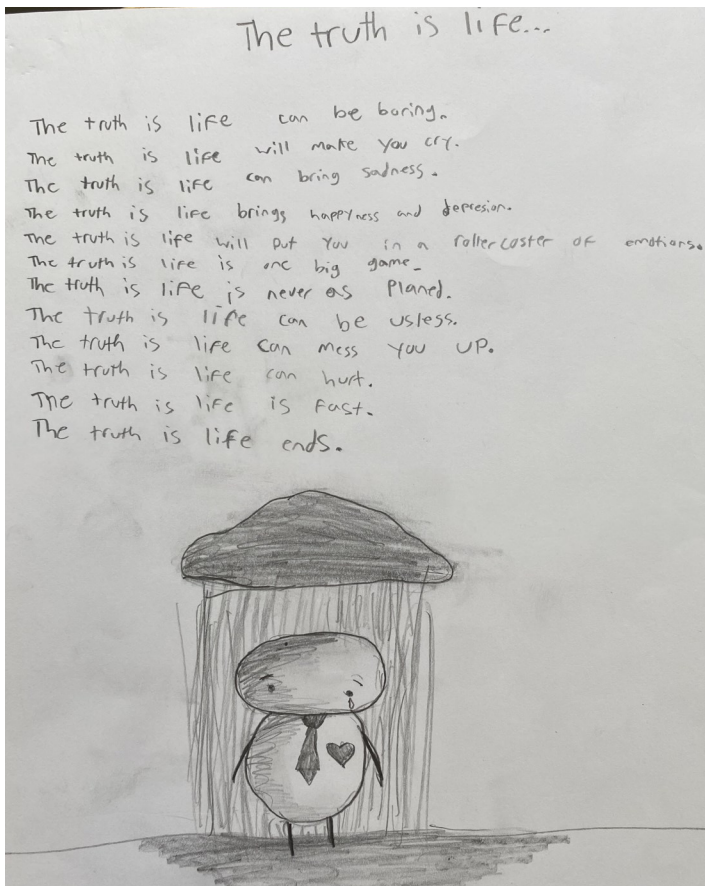 The truth is life...
The truth is life can be boring.
The truth is life will make you cry.
The truth is life can bring sadness.
The truth is life brings happyness and depresion.
The truth is life will put you in a roller coster of emotions.
The truth is life is one big game.
The truth is life is never as Planed.
The truth is life can be usless.
The truth is life can mess you up.
The truth is life can hurt.
The truth is life is fast.
The truth is life ends.